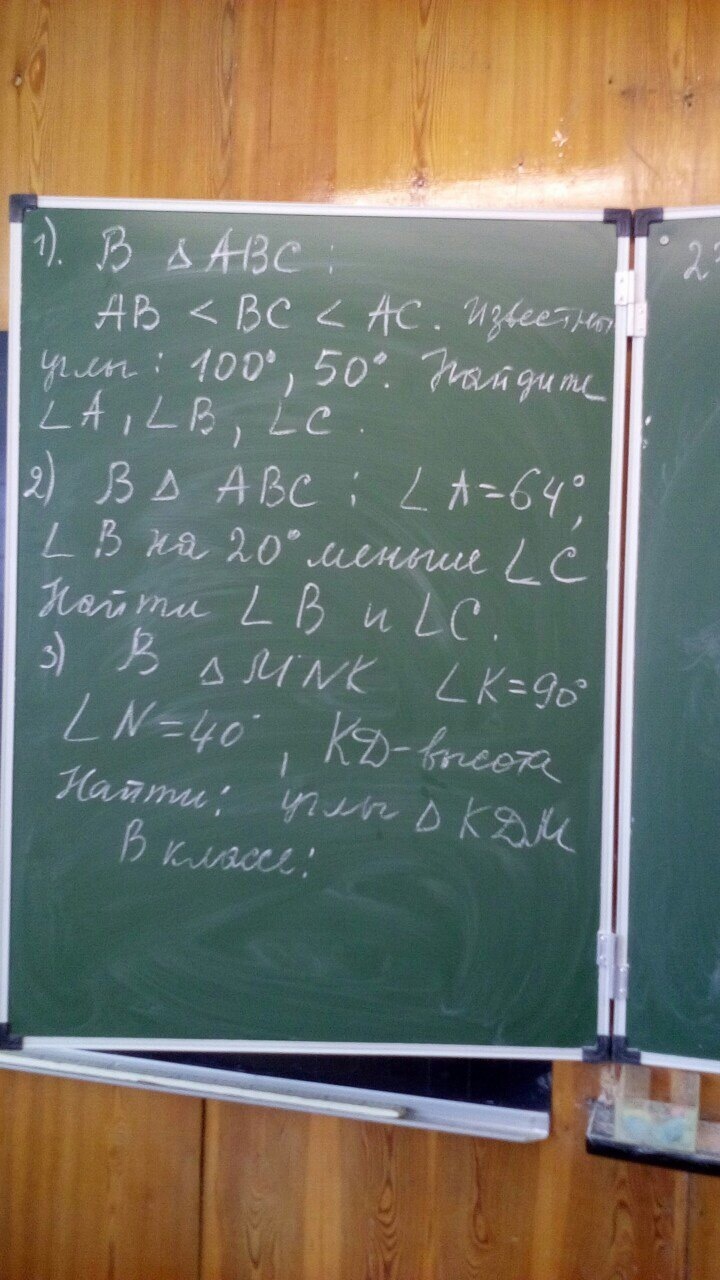 1). В △ ABC :
AB < BC < AC. Известны
углы : 100°, 50°. Найдите
∠A, ∠B, ∠C.
2) В △ ABC : ∠A=64°,
∠B на 20° меньше ∠C
Найти ∠B и ∠C.
3) В △MNK ∠K=90°
∠N=40°, КД-высота
Найти: углы △ КДМ
В классе:
2